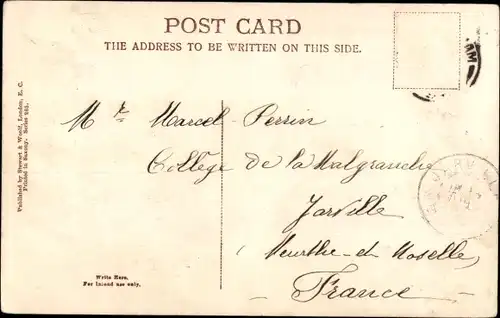 POST CARD
THE ADDRESS TO BE WRITTEN ON THIS SIDE.
Published by Stewart & Woolf, London, E. C.
Printed in Saxony. Series 251.
Mr Marcel Perrin
Collège de la Malgranche
Jarville
Meurthe-et-Moselle
France
Write Here.
For Inland use only.